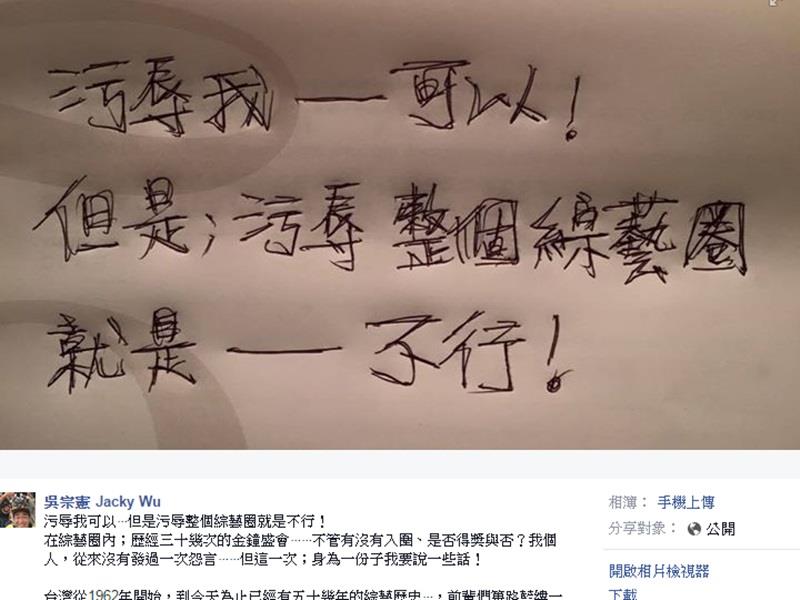 污辱我一可以!
但是;污辱整個綜藝圈
就是一不行!
吳宗憲 Jacky Wu
污辱我可以…但是污辱整個綜藝圈就是不行!
在綜藝圈內;歷經三十幾次的金鐘盛會……不管有沒有入圍、是否得獎與否?我個
人,從來沒有發過一次怨言……但這一次;身為一份子我要說一些話!
台灣從1962年開始,到今天為止已經有五十幾年的綜藝歷史…,前輩們篳路藍縷一
相簿: 手機上傳
分享對象: 公開
開啟相片檢視器
下載